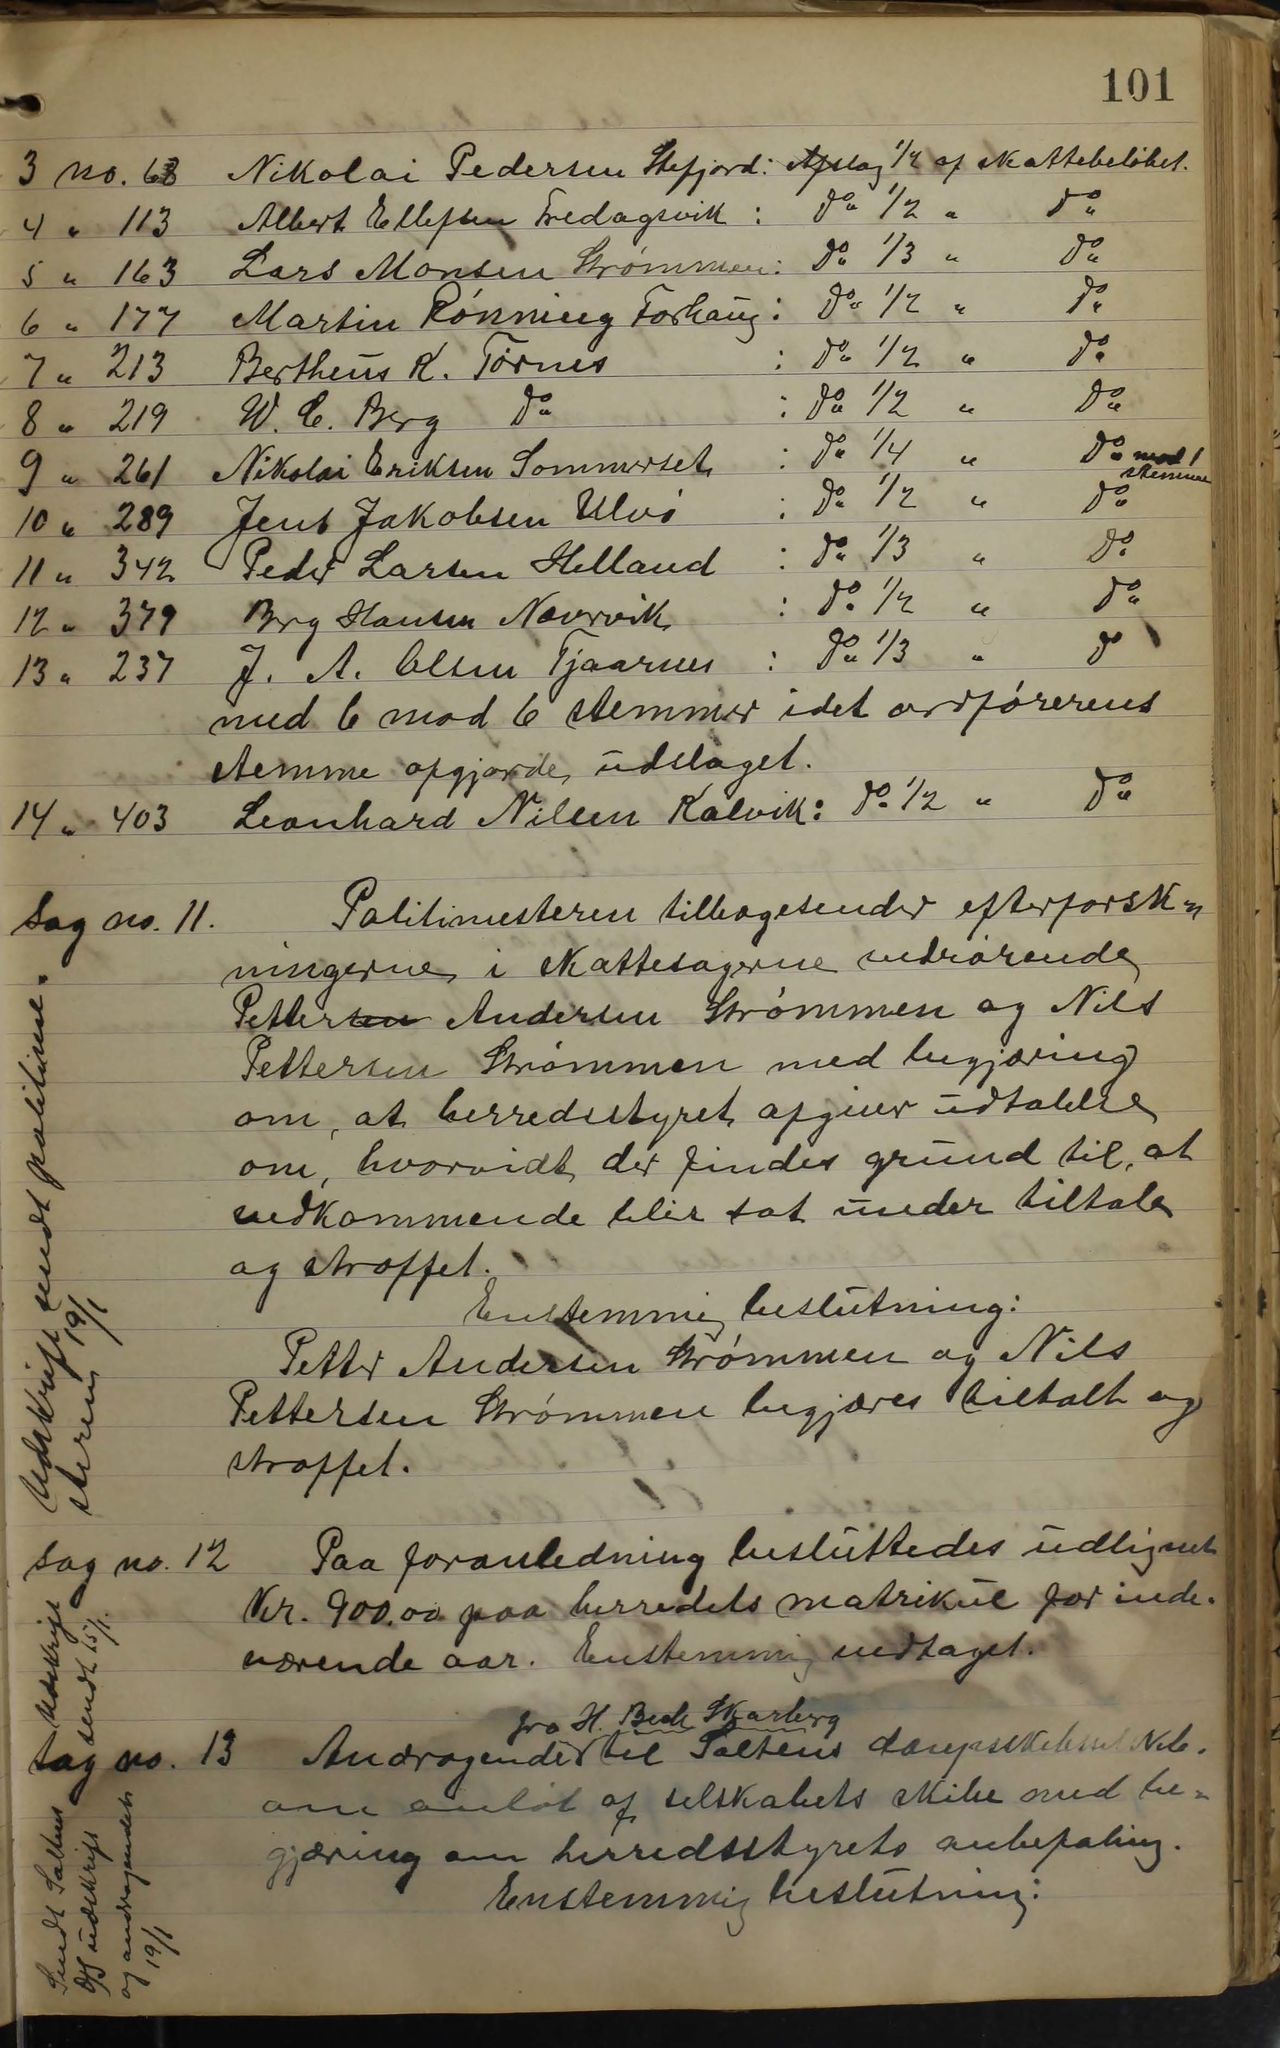 101
3 no. 68 Nikolai Pedersen Stefjord: Afslag 1/2 af skattebeløbet.
4 " 113 Albert Ellefsen Fredagsvik : do 1/2 " do
5 " 163 Lars Monsen Strømmen: do 1/3 " do
6 " 177 Martin Rønning Forhaug: do 1/2 " do
7 " 213 Bertheus K. Tørnes : do 1/2 " do
8 " 219 W. C. Berg do : do 1/2 " do
9 " 261 Nikolai Eriksen Sommerset : do 1/4 " do mod 1 stemme
10 " 289 Jens Jakobsen Ulvø : do 1/2 " do
11 " 342 Peder Larsen Helland : do 1/3 " do
12 " 379 Berg Hansen Nævervik : do 1/2 " do
13 " 237 J. A. Olsen Tjaarnes : do 1/3 " do
med 6 mod 6 stemmer idet ordførerens
stemme afgjorde udslaget.
14 " 403 Leonhard Nilsen Kalvik: do 1/2 " do
Sag no. 11. Politimesteren tilbagesender efterforsk-
ningerne i skattesagerne vedrørende
Pettersen Andersen Strømmen og Nils
Pettersen Strømmen med begjæring
om, at herredsstyret afgiver udtalelse
om, hvorvidt der findes grund til, at
vedkommende blir sat under tiltale
og straffet.
Enstemmig beslutning:
Petter Andersen Strømmen og Nils
Pettersen Strømmen begjæres tiltalt og
straffet.
Udskrift sendt politime-
steren 19/1
Sag no. 12 Paa foranledning besluttedes udlignet
Kr. 900.00 paa herredets matrikul for inde-
værende aar. Enstemmig vedtaget.
Udskrift
sendt 15/1.
fra H. Bech Skarberg
Sag no. 13 Andragender til Saltens dampskibssel
om anløb af selskabets skibe med be-
gjæring om herredsstyrets anbefaling.
Enstemmig beslutning:
Sendt Saltens
D/S udskrift
og andragendet
19/1